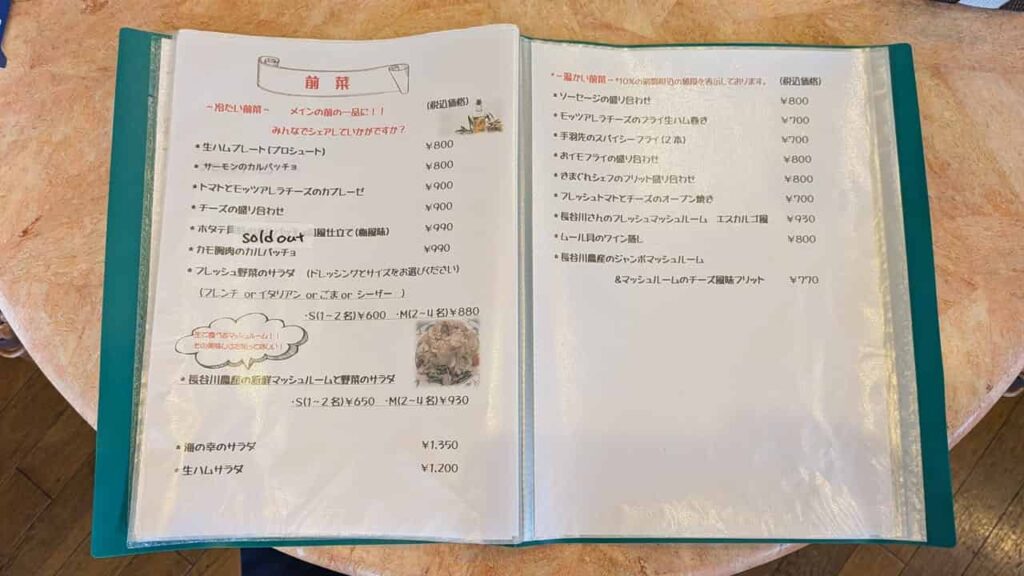 前菜
~冷たい前菜~ メインの前の一品に!! (税込価格)
みんなでシェアしていかがですか?
*生ハムプレート(プロシュート) ¥800
*サーモンのカルパッチョ ¥800
*トマトとモッツアレラチーズのカプレーゼ ¥900
*チーズの盛り合わせ ¥900
*ホタテ 風仕立て(梅風味) ¥990
sold out
*カモ胸肉のカルパッチョ ¥990
*フレッシュ野菜のサラダ (ドレッシングとサイズをお選びください)
(フレンチ or イタリアン or ごま or シーザー )
・S(1~2名)¥600 ・M(2~4名)¥880
生で食べるマッシュルーム!!
*長谷川農産の新鮮マッシュルームと野菜のサラダ
・S(1~2名)¥650 ・M(2~4名)¥930
*海の幸のサラダ ¥1.350
*生ハムサラダ ¥1.200
*~温かい前菜~*10%の消費税込の値段を表示しております。 (税込価格)
*ソーセージの盛り合わせ ¥800
*モッツアレラチーズのフライ生ハム巻き ¥700
*手羽先のスパイシーフライ(2本) ¥700
*おイモフライの盛り合わせ ¥800
*きまぐれシェフのフリット盛り合わせ ¥800
*フレッシュトマトとチーズのオーブン焼き ¥700
*長谷川さんのフレッシュマッシュルーム エスカルゴ風 ¥930
*ムール貝のワイン蒸し ¥800
*長谷川農産のジャンボマッシュルーム
&マッシュルームのチーズ風味フリット ¥770